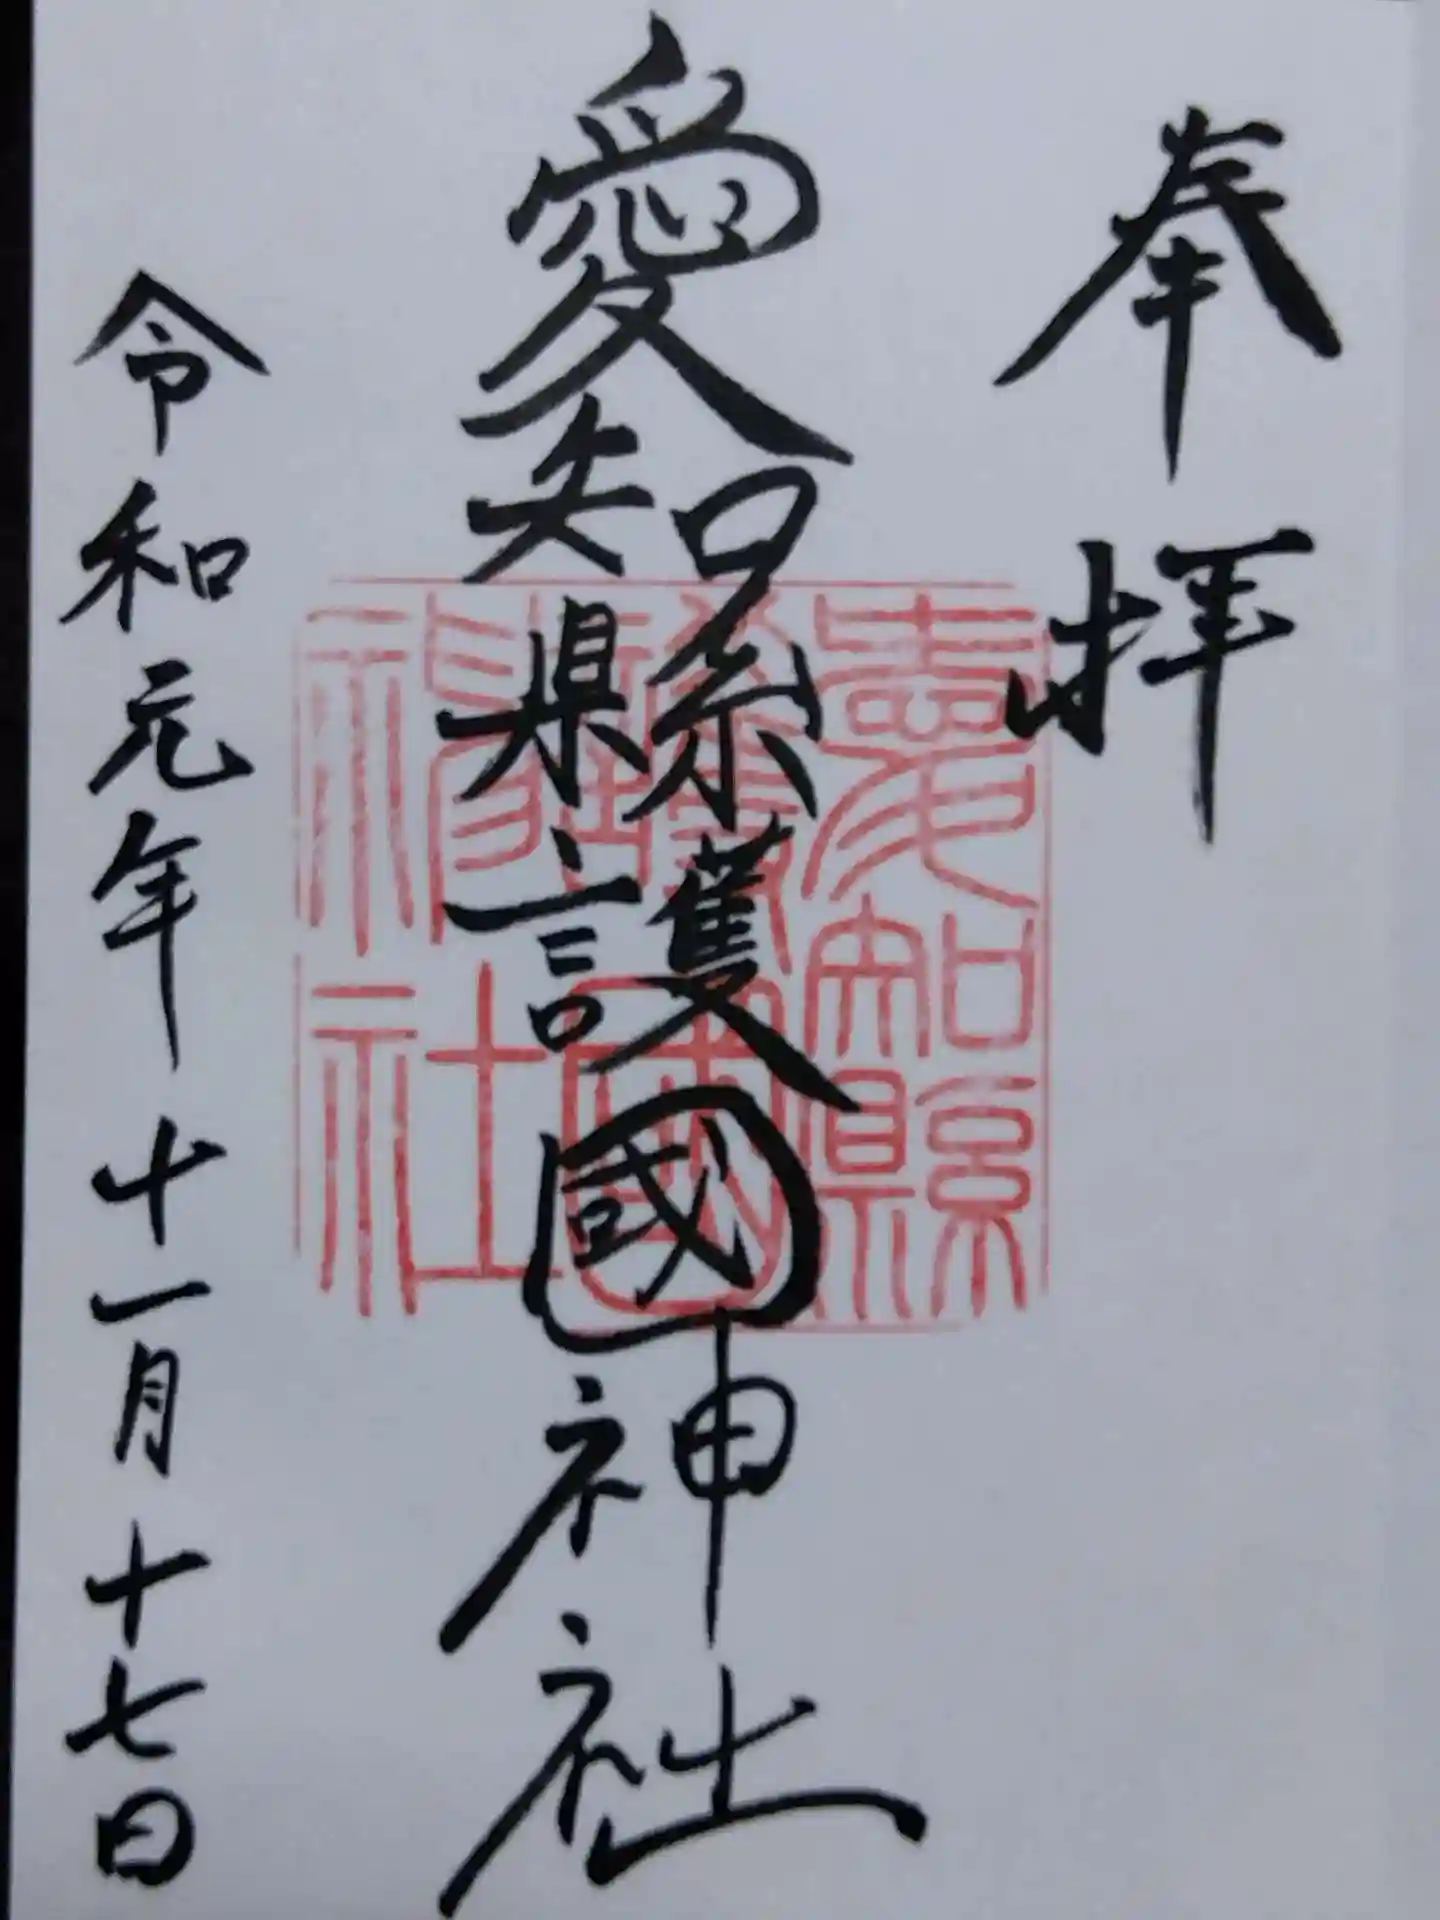 奉拝
愛知縣護國神社
愛知縣護國神社
令和元年十一月十七日